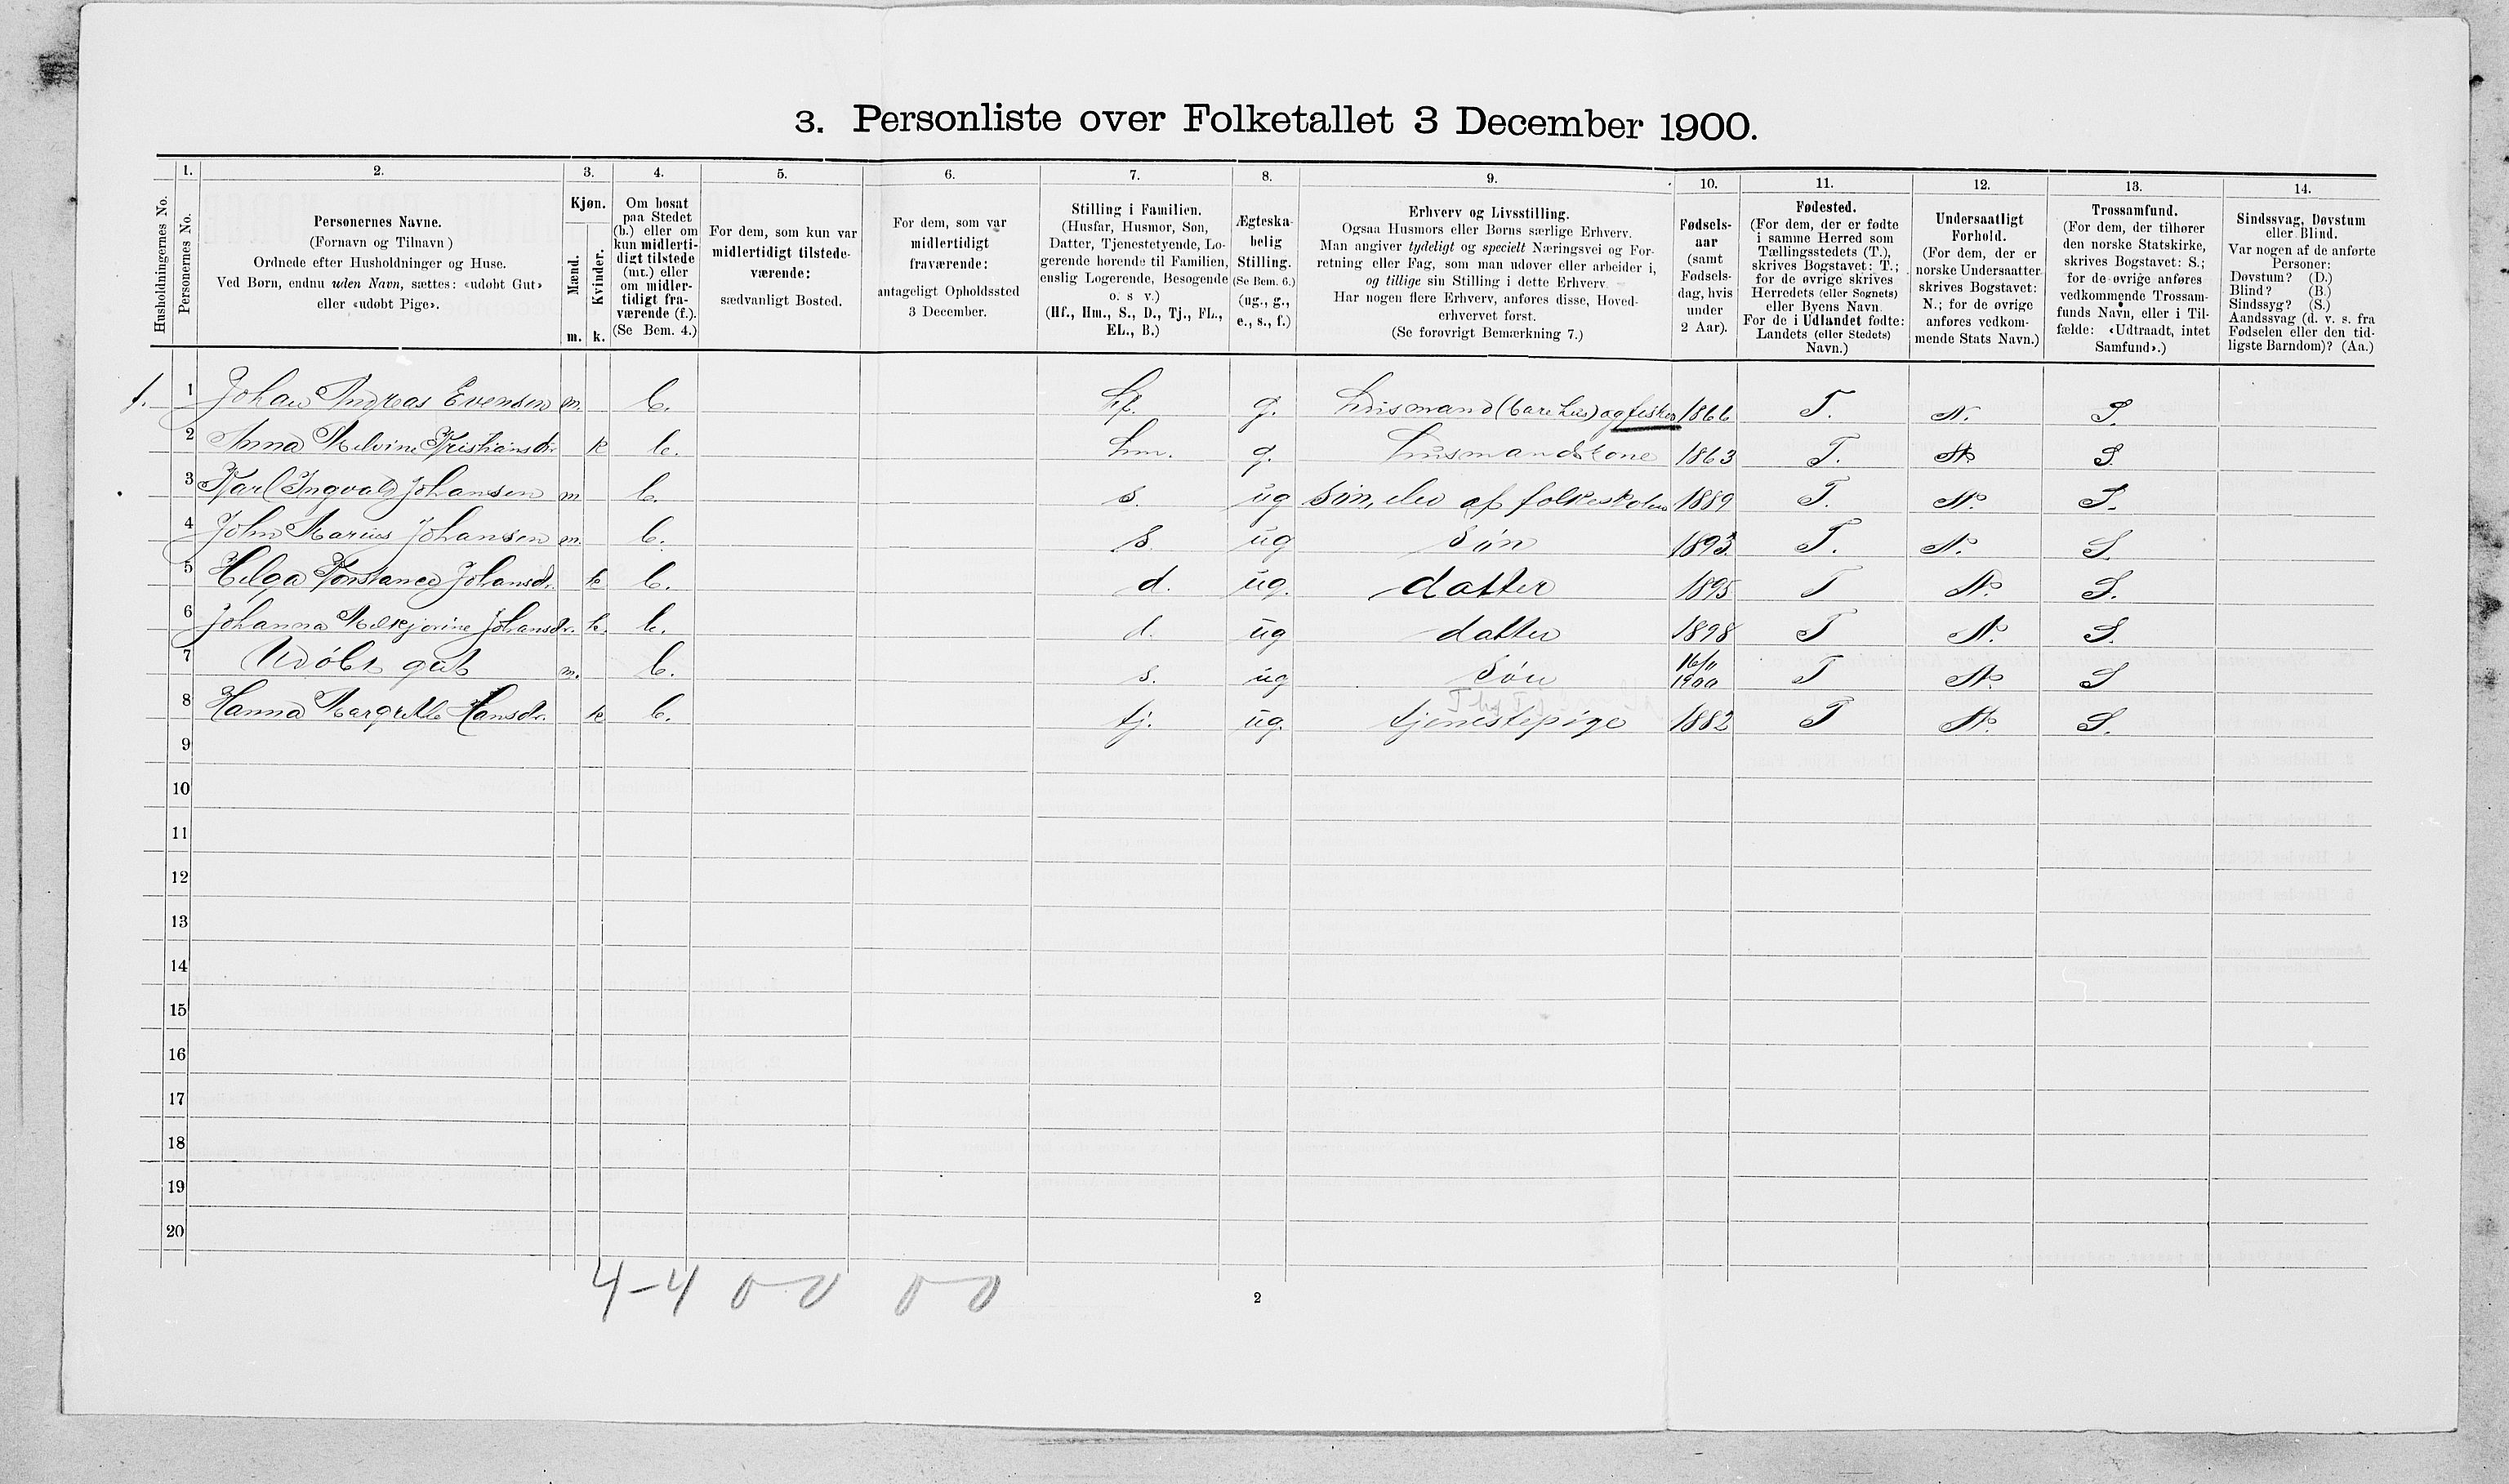 3. Personliste over Folketallet 3 December 1900.
1. 2. 3. 4. 5. 6. 7. 8. 9. 10. 11. 12. 13. 14.
Husholdningernes No.
Personernes No.
Personernes Navne.
(Fornavn og Tilnavn)
Ordnede efter Husholdninger og Huse.
Ved Børn, endnu uden Navn, sættes: «udøbt Gut»
eller «udøbt Pige».
Kjøn.
Mænd.
Kvinder.
m. k.
Om bosat
paa Stedet
(b.) eller om
kun midlerti-
digt tilstede
(mt.) eller
om midler-
tidigt fra-
værende (f.).
(Se Bem. 4.)
For dem, som kun var
midlertidigt tilstede-
værende:
sædvanligt Bosted.
For dem, som var
midlertidigt
fraværende:
antageligt Opholdssted
3 December.
Stilling i Familien.
(Husfar, Husmor, Søn,
Datter, Tjenestetyende, Lo-
gerende hørende til Familien,
enslig Logerende, Besøgende
o. s v.)
(Hf., Hm., S., D., Tj., FL.,
EL., B.)
Ægteska-
belig
Stilling.
(Se Bem. 6.)
(ug., g.,
e., s., f.)
Erhverv og Livsstilling.
Ogsaa Husmors eller Børns særlige Erhverv.
Man angiver tydeligt og specielt Næringsvei og For-
retning eller Fag, som man udøver eller arbeider i,
og tillige sin Stilling i dette Erhverv.
Har nogen flere Erhverv, anføres disse, Hoved-
erhvervet først.
(Se forøvrigt Bemærkning 7.)
Fødsels-
aar
(samt
Fødsels-
dag, hvis
under
2 Aar).
Fødested.
(For dem, der er fødte
i samme Herred som
Tællingsstedets (T.),
skrives Bogstavet: T.;
for de øvrige skrives
Herredets (eller Sognets)
eller Byens Navn.
For de i Udlandet fødte:
Landets (eller Stedets)
Navn.)
Undersaatligt
Forhold.
(For dem, der er
norske Undersaatter,
skrives Bogstavet:
N.; for de øvrige
anføres vedkom-
mende Stats Navn.)
Trossamfund.
(For dem, der tilhører
den norske Statskirke,
skrives Bogstavet: S.;
for de øvrige anføres
vedkommende Trossam-
funds Navn, eller i Til-
fælde: «Udtraadt, intet
Samfund».)
Sindssvag, Døvstum
eller Blind.
Var nogen af de anførte
Personer:
Døvstum? (D.)
Blind? (B.)
Sindssyg? (S.)
Aandssvag (d. v. s. fra
Fødselen eller den tid-
ligste Barndom)? (Aa.)
1. 1 Johan Andreas Evensen m. b. hf. g. husmand (bare hus) og fisker 1866 T. N. S.
2 Anna Melvine Kristiansdr. k b. hm. g. husmandskone 1863 T. N. S.
3 Karl Ingvald Johansen m b. s. ug søn, elev af folkeskolen 1889 T. N. S.
4 John Marius Johansen m. b. s. ug søn 1893. T. N. S.
5 Helga Konstance Johansd. k b. d. ug. datter 1895 T N. S.
6 Johanna Melkjorine Johansdr. k. b. d. ug datter 1898 T N. S.
7 Udøbt gut m. b. s. ug søn 16/11 1900 T N. S
8 Hanna Margrethe Hansdr. k b. tj. ug. tjenestepige 1882 T N. S.
9
10
11
12
13
14
15
16
17
18
19
20
4-4 0-0 0-0
2